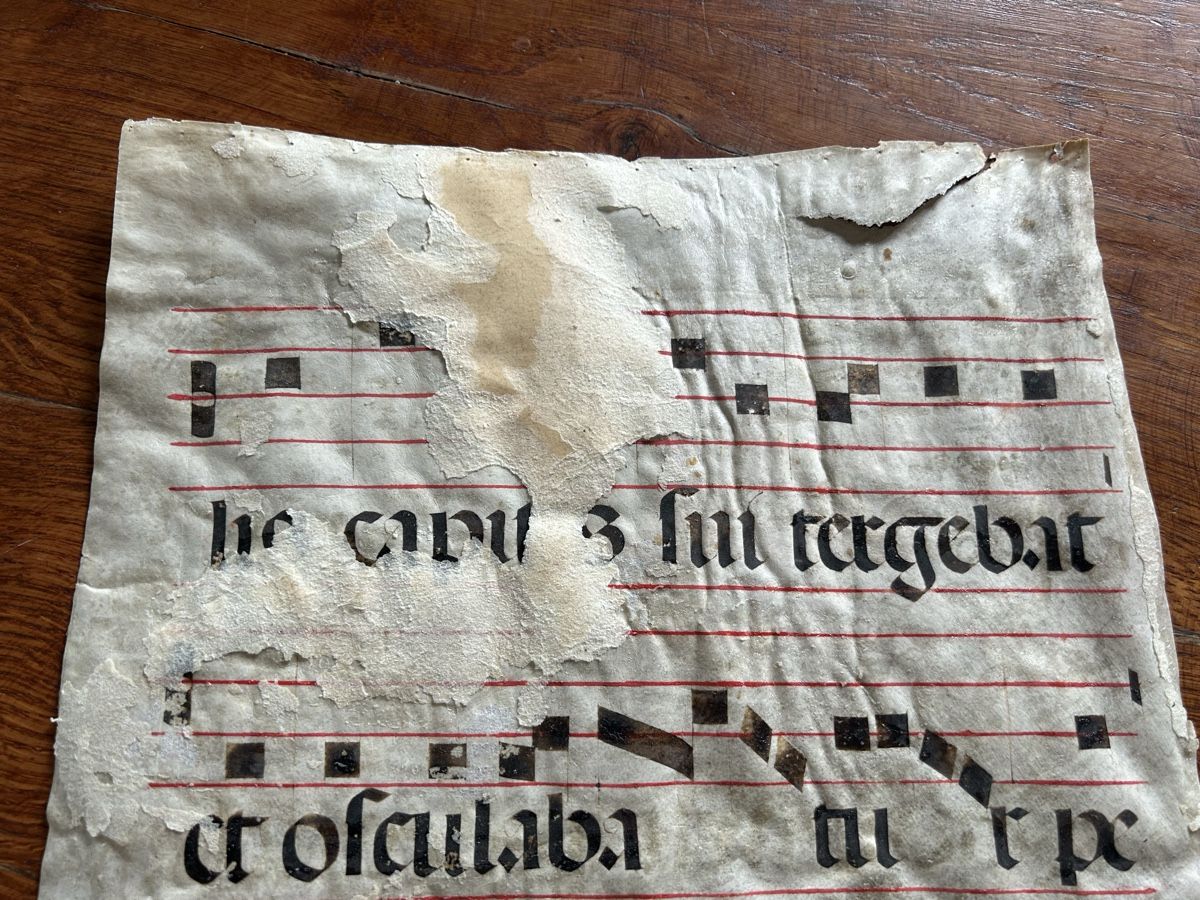 capitis sui tergebat
et osculaba tu r pe